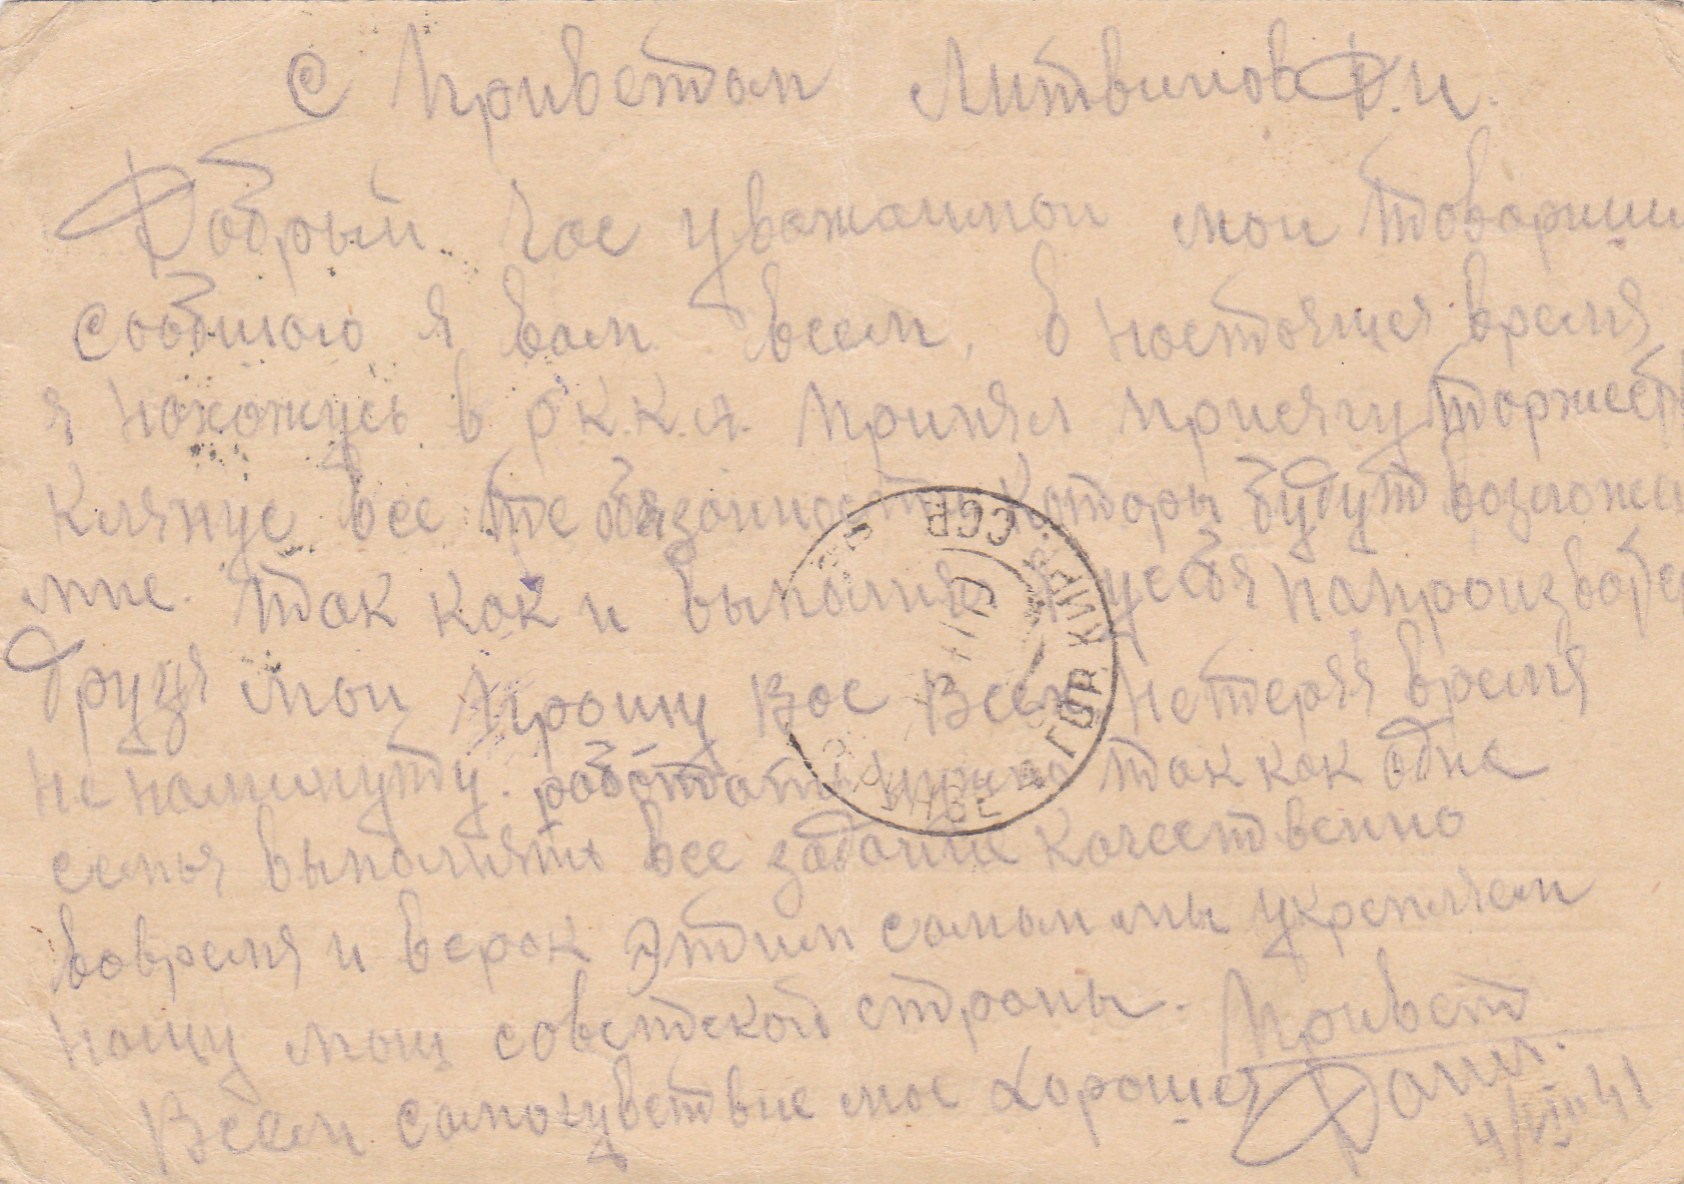 С приветом Литвинов Д.И.
Добрый час уважаимои мои товарищи
сообщаю я вам всем, в настоящея время
я нахожусь в Р.К.К.А. принял присягу торжеств
клянус все те обязанность которы будут возложен
мне. так как и выполнял у себя на производст
друзя мои прошу вас всех нетеряя время
не наминуту. работат нужно так как одна
семья выполнять все задание качественно
вовремя и всрок Этим самым мы укрепляем
нашу мощ советской страны. Привет
Всем самочувствие мое хорошея Данил.
4/VIII 41
КИРГ. ССР